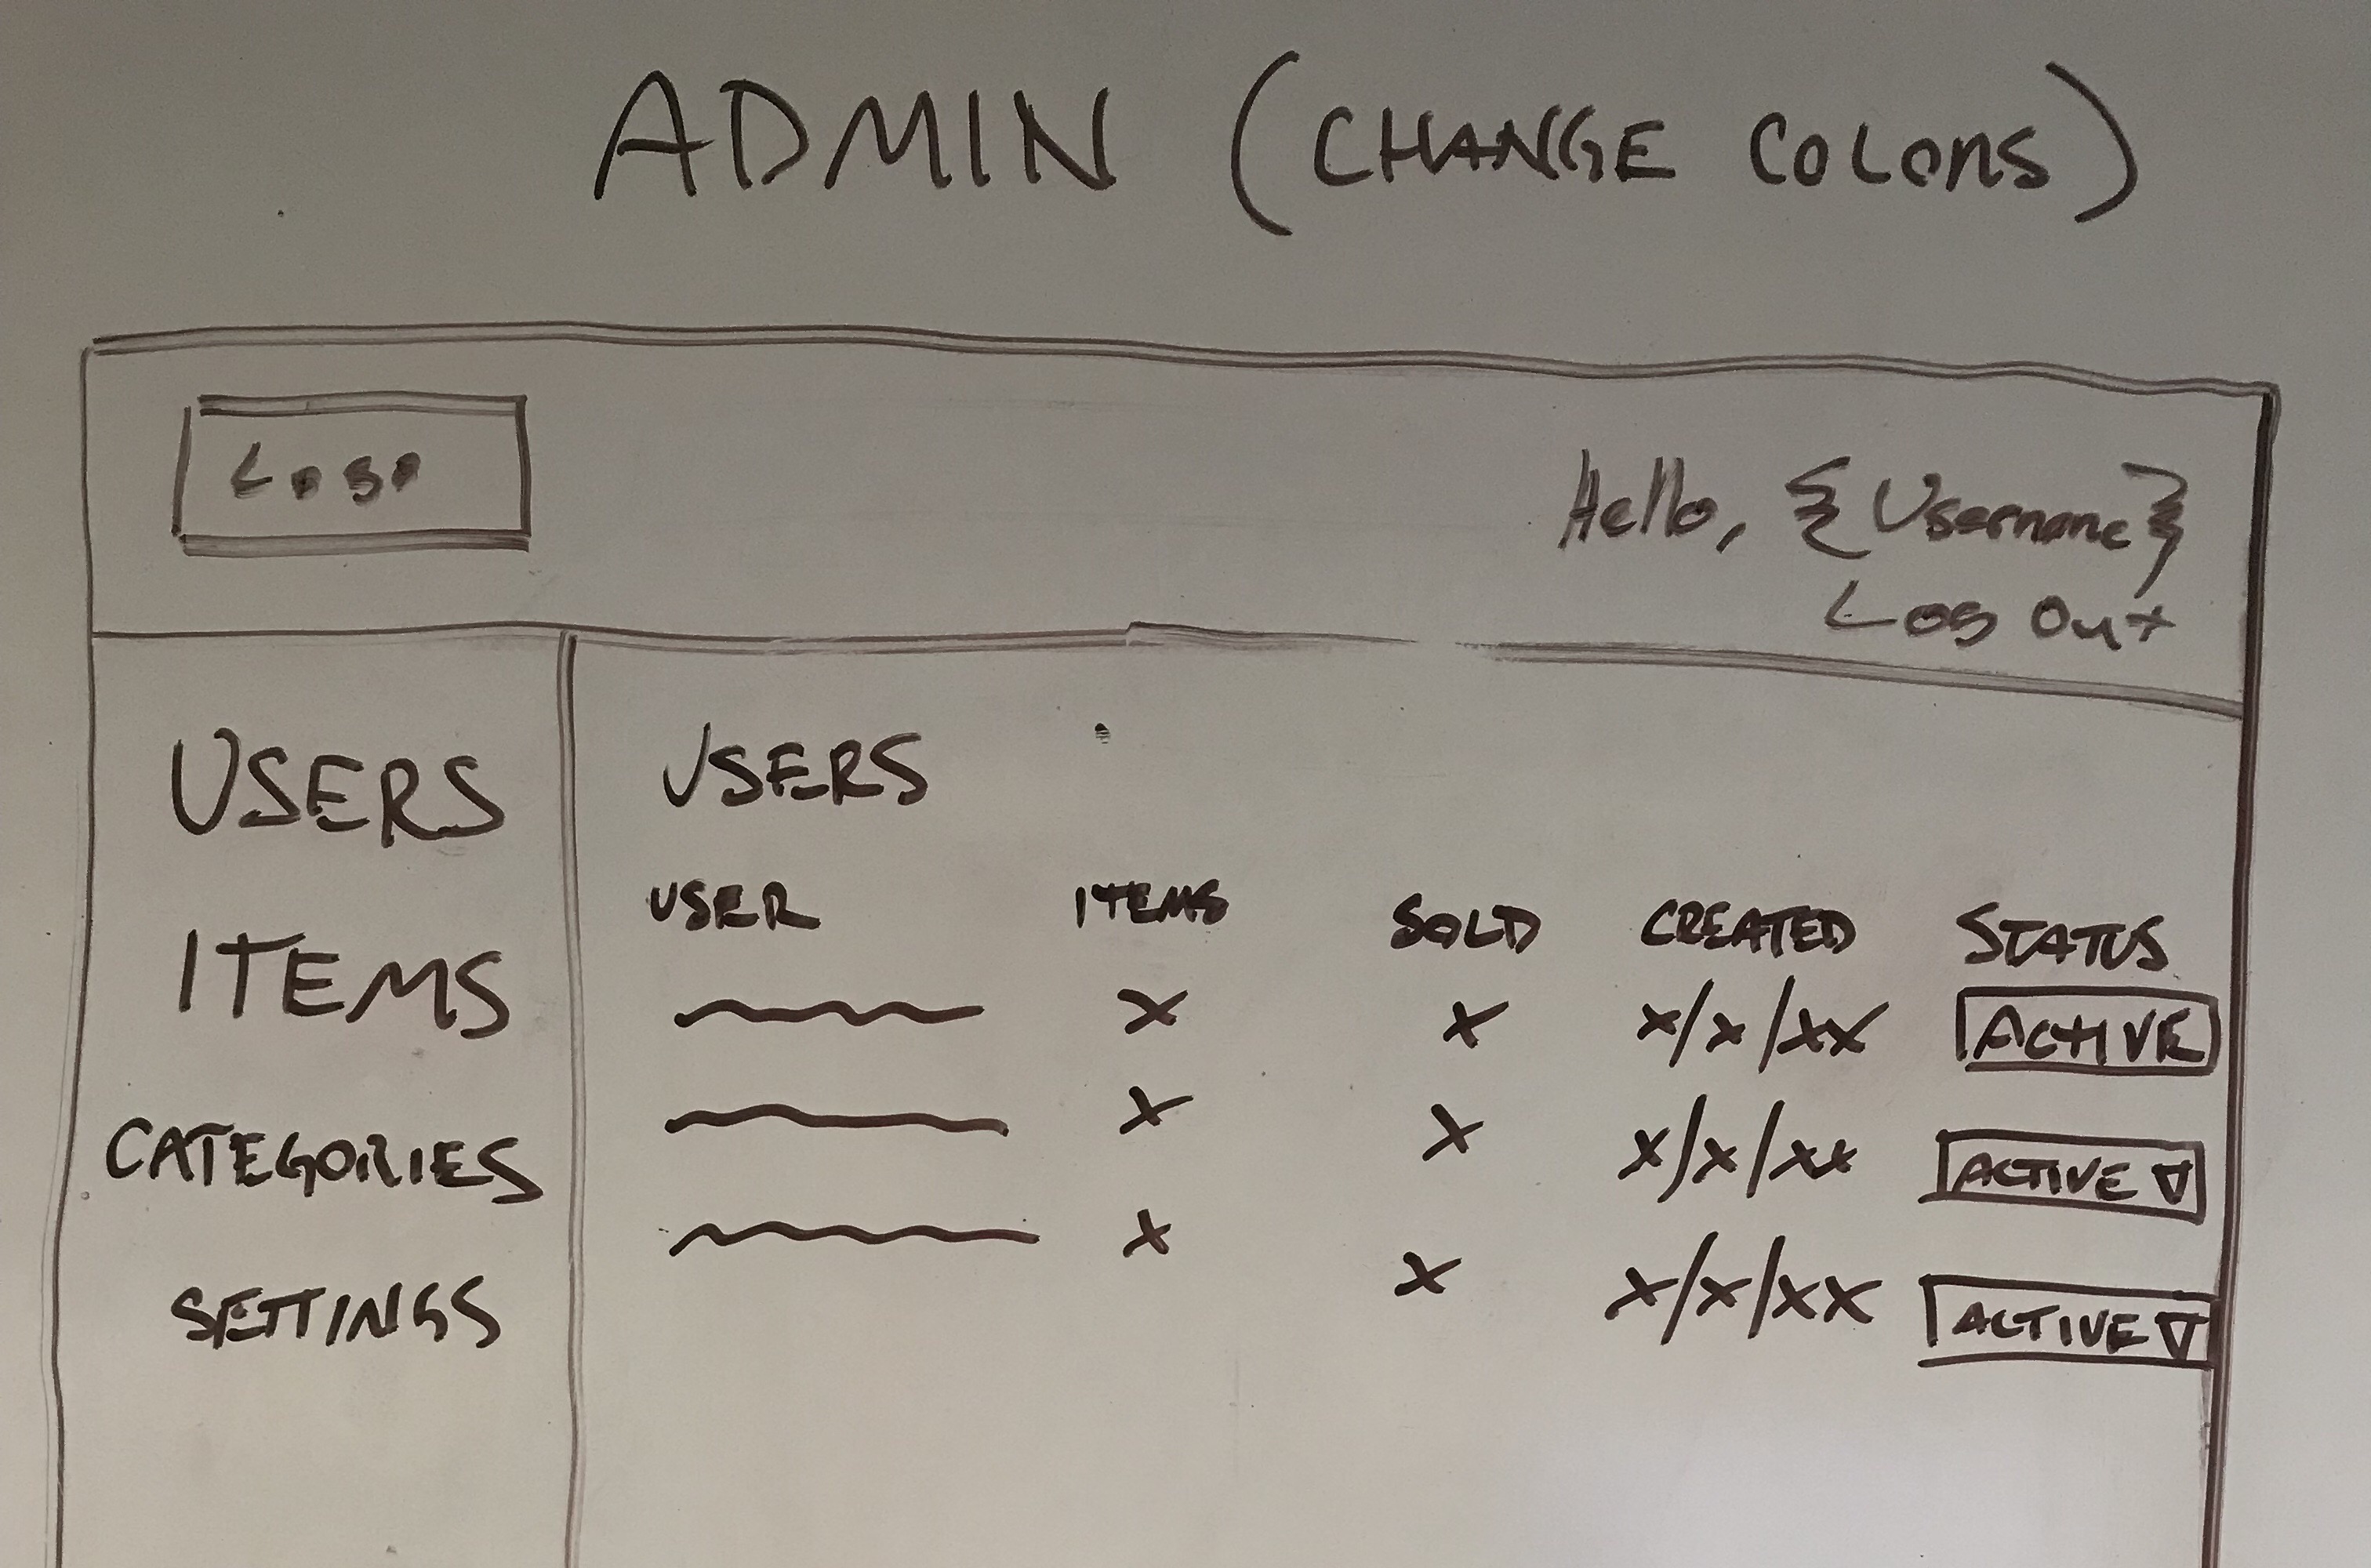 ADMIN (CHANGE COLORS)
Logo
Hello, {Username}
Log Out
USERS
ITEMS
CATEGORIES
SETTINGS
USERS
USER ITEMS SOLD CREATED STATUS
x x x/x/xx ACTIVE
x x x/x/xx ACTIVE ▽
x x x/x/xx ACTIVE ▽